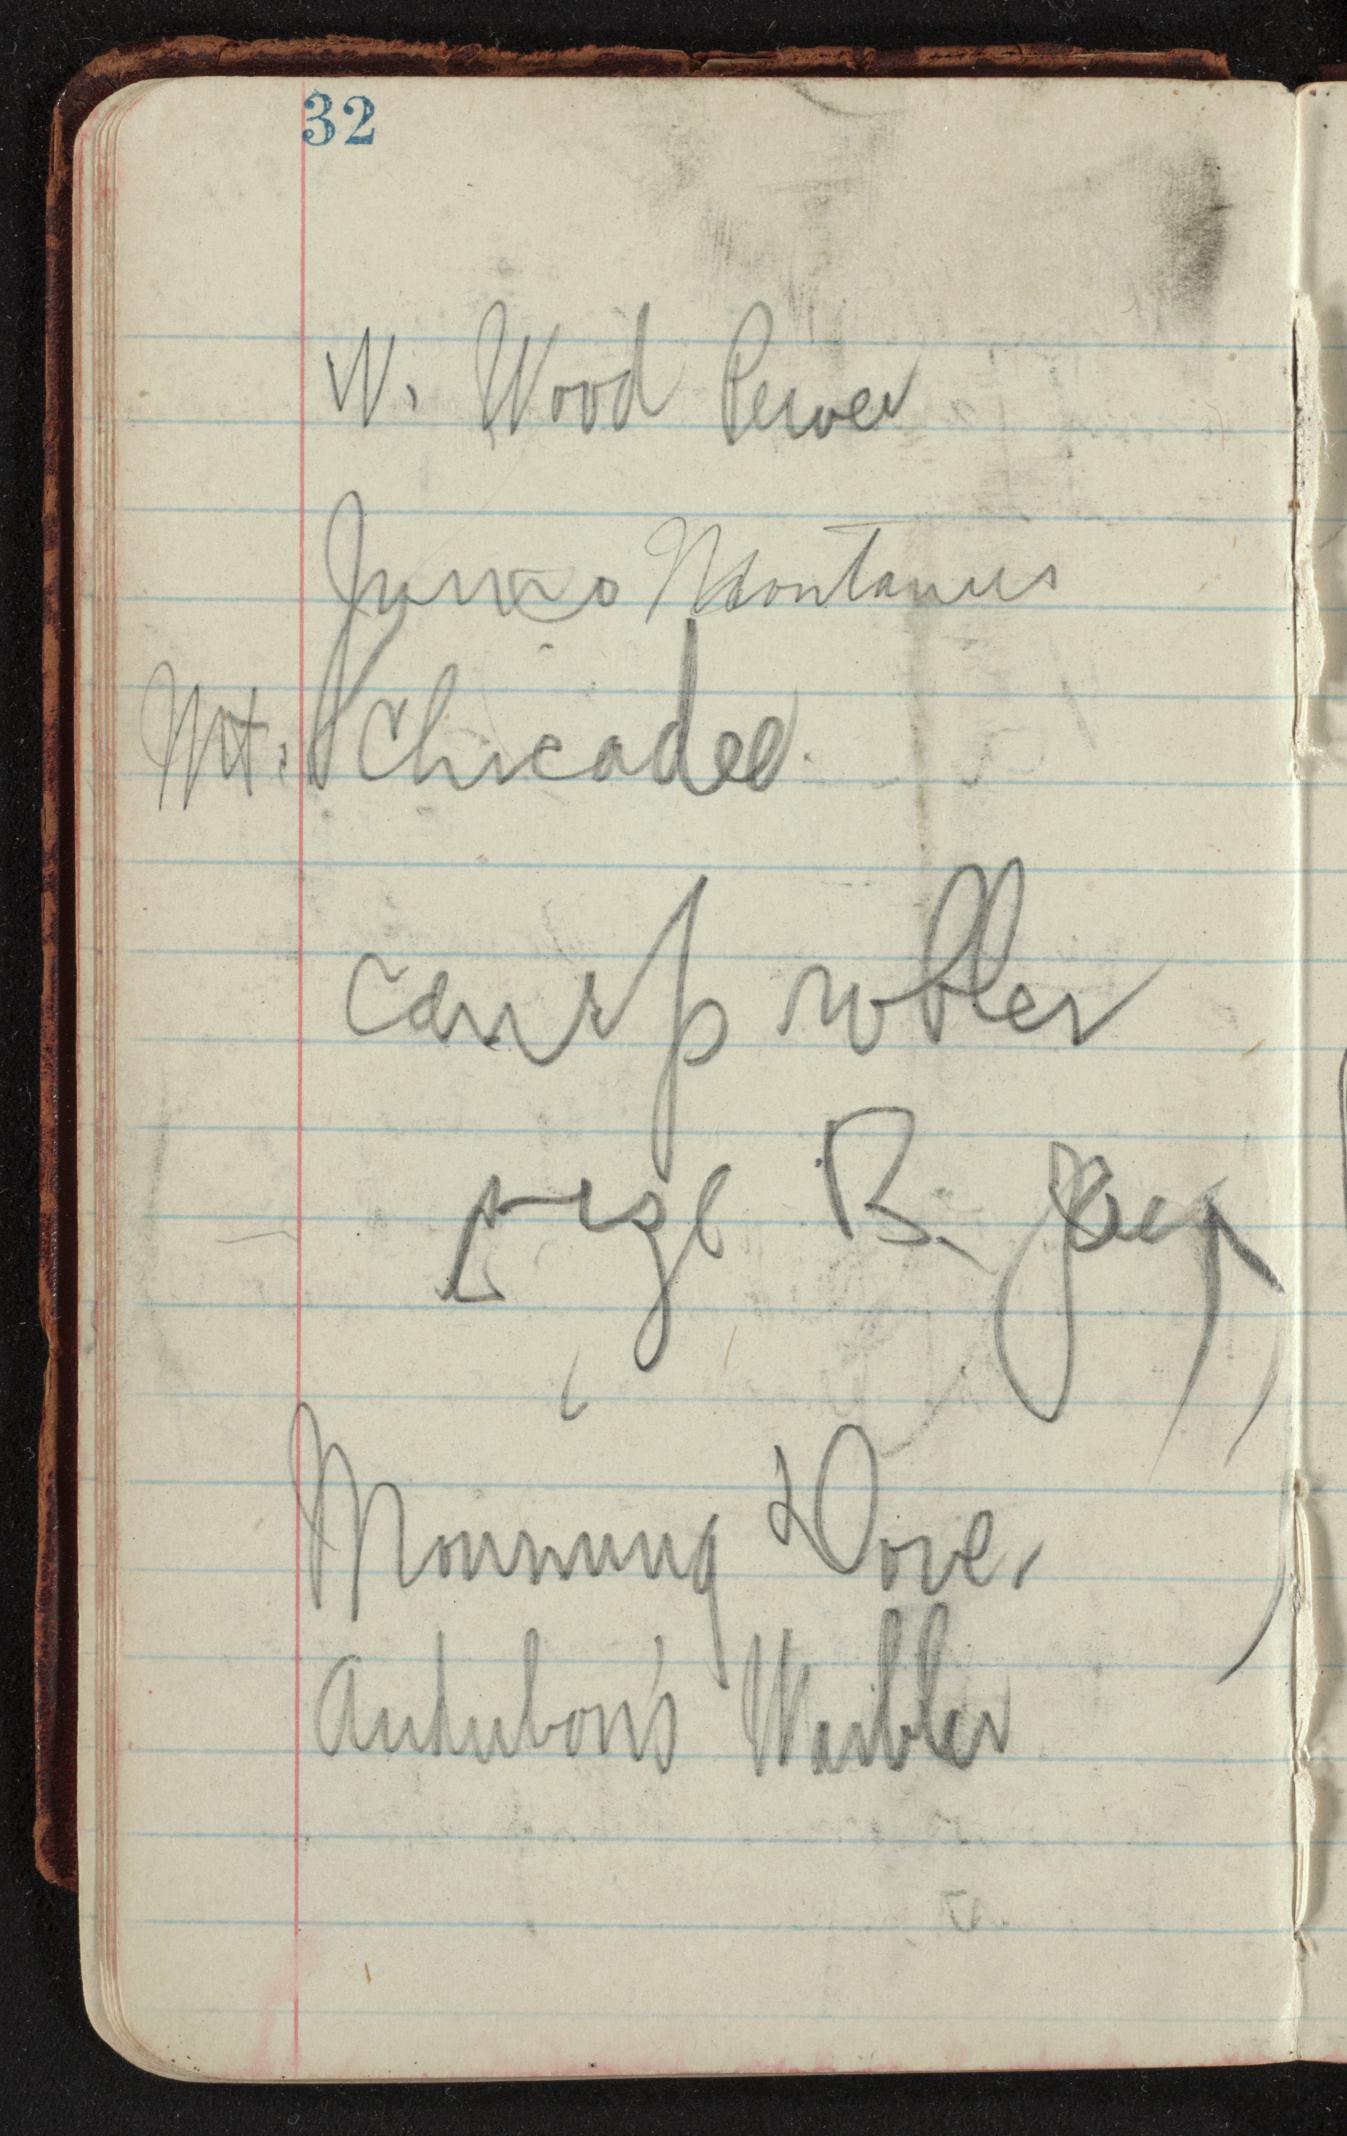 32
W. Wood Pewee
Junco Montanus
Mt. Chicadee
camp robber
B. Jay
Mourning Dove
Audubon's Warbler